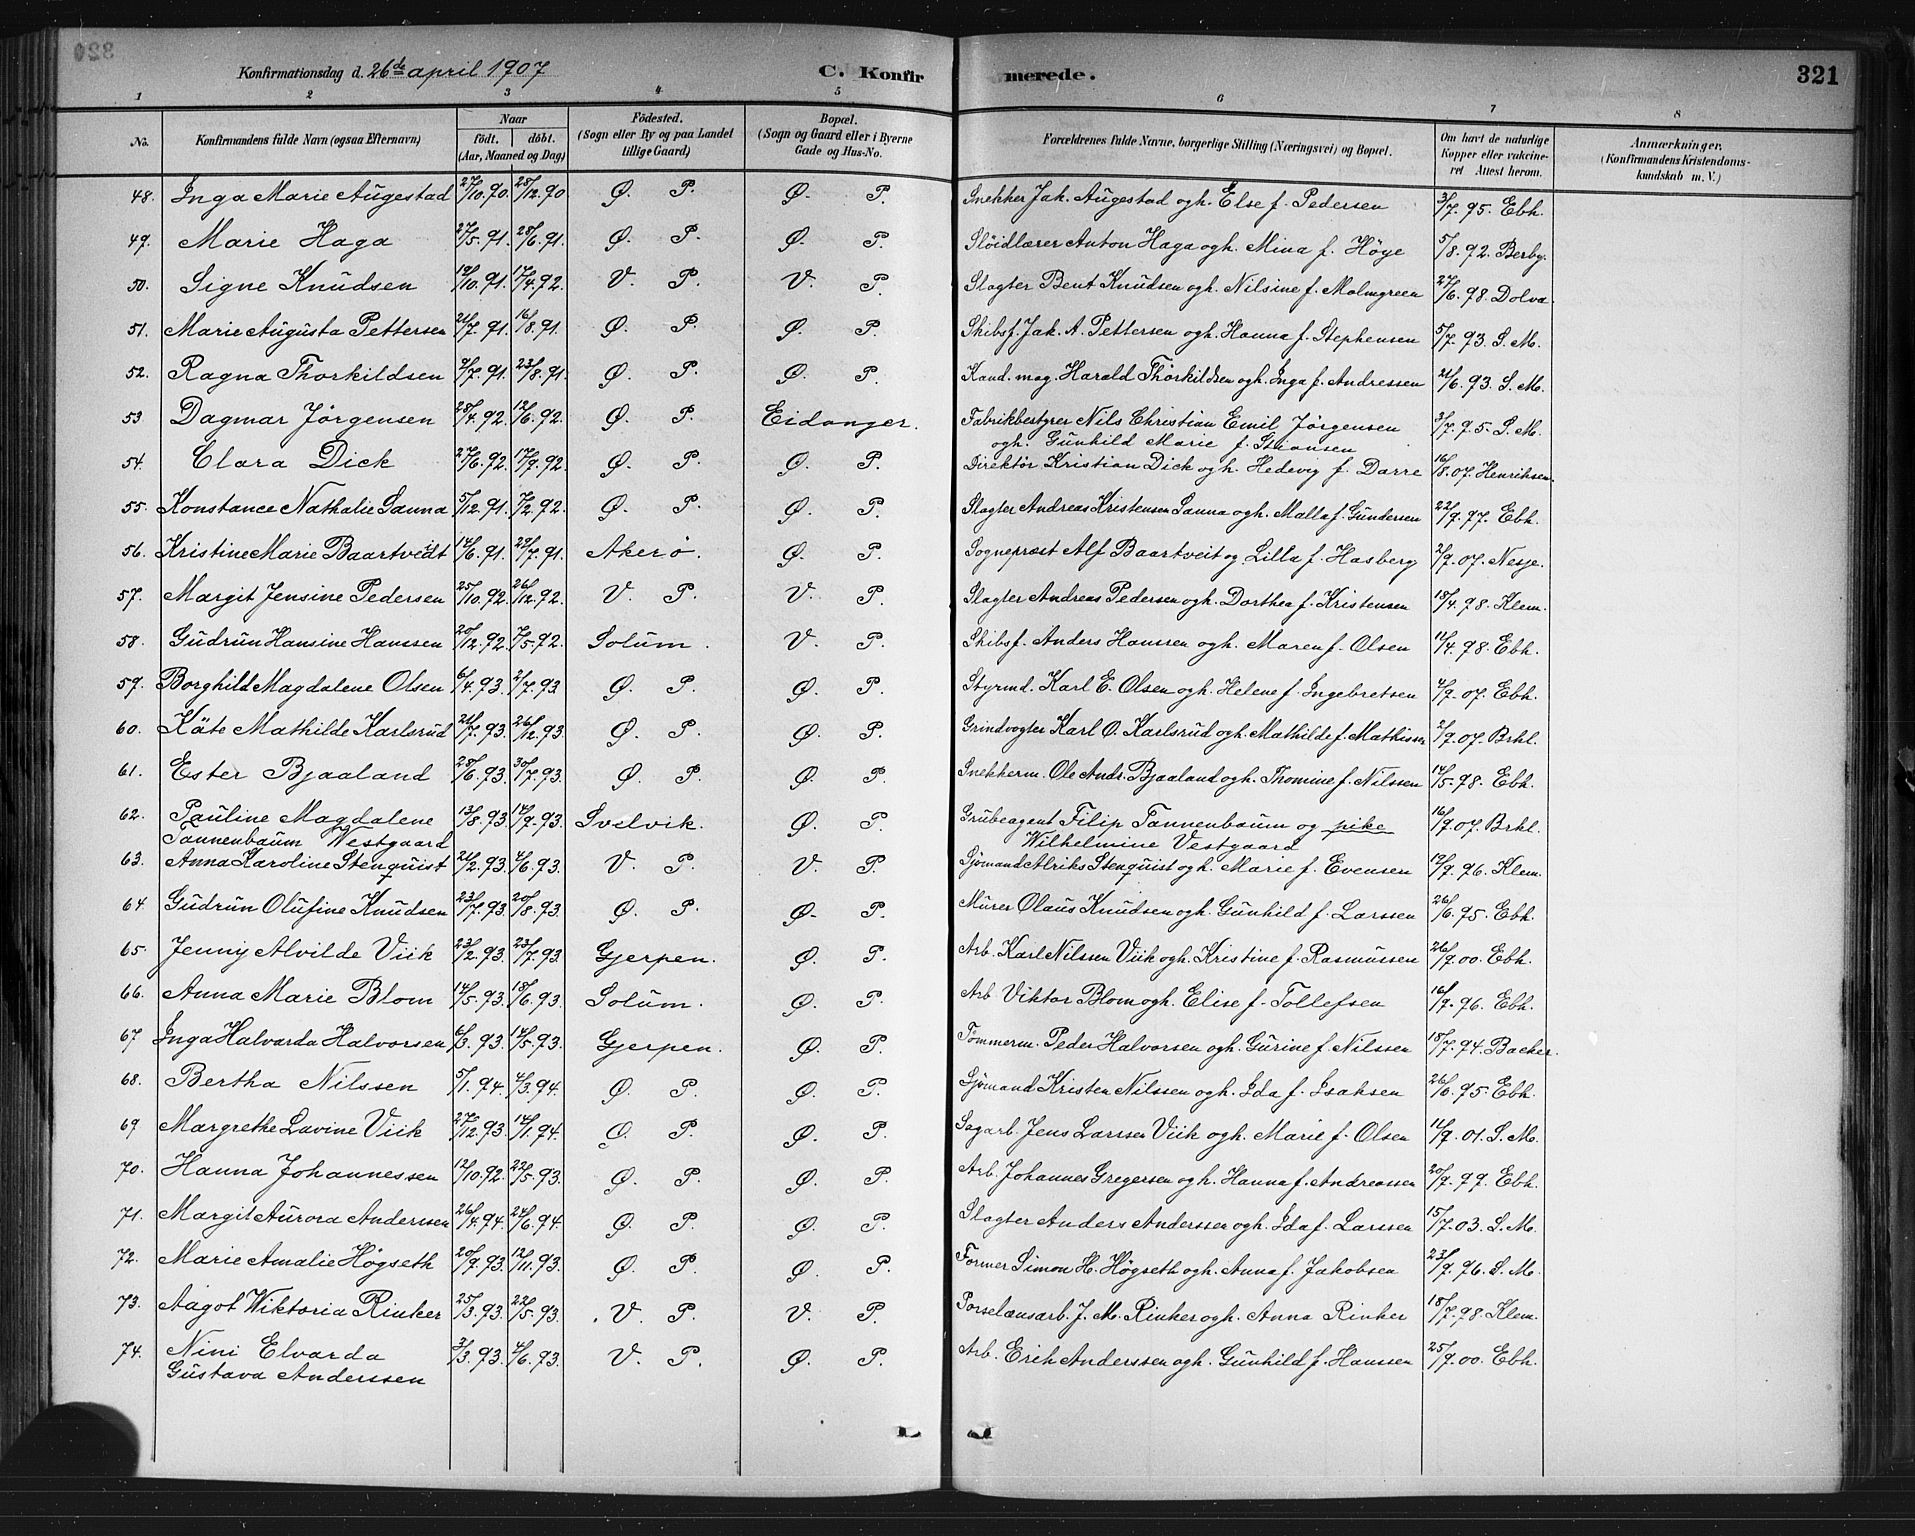 Konfirmationsdag d. 26de april 1907 C. Konfirmerede. 321
1 2 3 4 5 6 7 8
No. Konfirmandens fulde Navn (ogsaa Efternavn) Naar født. døbt. (Aar, Maaned og Dag) Fødested. (Sogn eller By og paa Landet tillige Gaard) Bopæl. (Sogn og Gaard eller i Byerne Gade og Hus-No. Forældrenes fulde Navne, borgerlige Stilling (Næringsvei) og Bopæl. Om havt de naturlige Kopper eller vakcineret Attest herom. Anmærkninger. (Konfirmandens Kristendomskundskab m. V.)
48. Inga Marie Augestad 27/10.90 28/12.90 Ø. P. Ø. P. Snekker Jak. Augestad ogh. Else f. Pedersen 3/7. 95. Ebh.
49. Marie Haga 27/5.91. 28/6.91. Ø. P. Ø. P. Sløidlærer Anton Haga ogh. Mina f. Høye 5/8.92. Berby.
50. Signe Knudsen 19/10.91. 17/4.92. V. P. V. P. Slagter Bent Knudsen ogh. Nilsine f. Malmgreen 27/6.98. Dolva.
51. Marie Augusta Pettersen 21/7.91. 16/8.91. Ø. P. Ø. P. Skibsf. Jak. A. Pettersen ogh. Hanna f. Stephensen 5/7.93. S. M.
52. Ragna Thorkildsen 9/7.91. 23/8.91. Ø. P. Ø. P. Kand. mag. Harald Thorkildsen ogh. Inga f. Andressen 21/6.93. S. M.
53 Dagmar Jørgensen 28/4.92. 12/6.92. Ø. P. Eidanger. Fabrikbestyrer Nils Christian Emil Jørgensen 3/7.95. S. M.
ogh. Gunhild Marie f.
54. Clara Dick 27/6.92. 17/9.92. Ø. P. Ø. P. Direktør Kristian Dick ogh. Hedevig f. Darre 16/8.07. Henriksen.
55. Konstance Nathalie Sanna 5/12.91. 7/2.92. Ø. P. Ø. P. Slagter Andreas Kristensen Sanna ogh. Malla f. Gundersen 22/9.97. Ebh.
56. Kristine Marie Baartvedt 14/6.91. 29/7.91. Akerö. Ø. P. Sognepræst Alf Baartveit og Lilla f. Hasberg 2/9.07. Nesje.
57. Margit Jensine Pedersen 25/10.92. 26/12.92. V. P. V. P. Slagter Andreas Pedersen ogh. Dorthea f. Kristensen 18/4.98. Klem.
58. Gudrun Hansine Hanssen 20/12.92. 7/5.92. Solum. V. P. Skibsf. Anders Hanssen ogh. Maren f. Olsen 11/4.98. Ebh.
59. Borghild Magdalene Olsen 6/4.93. 2/7.93. Ø. P. Ø. P. Styrmd. Karl E. Olsen ogh. Helene f. Ingebretsen 4/9.07. Ebh.
60. Käte Mathilde Karlsrud 21/7.93. 26/12.93. Ø. P. Ø. P. Grindvogter Karl O. Karlsrud ogh. Mathilde f. Mathissen 2/9.07. Brhl.
61. Ester Bjaaland 28/6.93. 30/7.93. Ø. P. Ø. P. Snekkerm. Ole Andr. Bjaaland ogh. Thomine f. Nilssen 14/5.98. Ebh.
62. Pauline Magdalene 13/8.93. 17/9.93. Svelvik. Ø. P. Grubeagent Filip Tannenbaum og pike 16/9.07. Brhl.
Tannenbaum Westgaard Wilhelmine Vestgaard
63. Anna Karoline Stenquist 21/2.93. 4/6.93. V. P. V. P. Sjømand Alriks Stenquist ogh. Marie f. Evensen 19/9.96. Klem.
64 Gudrun Olufine Knudsen 23/7.93. 20/8.93. Ø. P. Ø. P. Murer Olaus Knudsen ogh. Gunhild f. Larssen 26/6.95. Ebh.
65. Jenny Alvilde Viik 23/2.93. 23/7.93. Gjerpen. Ø. P. Arb. Karl Nilssen Viik ogh. Kristine f. Rasmussen 26/9.00. Ebh.
66. Anna Marie Blom 14/5.93. 18/6.93. Solum. Ø. P. Arb. Viktor Blom ogh. Elise f. Tollefsen 16/9.96. Ebh.
67 Inga Halvarda Halvorsen 6/3.93. 14/5.93. Gjerpen. Ø. P. Tømmerm. Peder Halvorsen ogh. Gurine f. Nilssen 18/7.94. Backer.
68. Bertha Nilssen 5/1.94. 4/3.94. Ø. P. Ø. P. Sjømand Kristen Nilssen ogh. Ida f. Isaksen 26/6.95. Ebh.
69 Margrethe Lavine Viik 27/12.93. 14/1.94. Ø. P. Ø. P. Sagarb. Jens Larssen Viik ogh. Marie f. Olsen 11/9.01. S. M.
70. Hanna Johannessen 12/10.92. 22/5.93. Ø. P. Ø. P. Arb. Johannes Gregersen ogh. Hanna f. Andreassen 20/9.99. Ebh.
71. Margit Aurora Anderssen 26/4.94. 24/6.94. Ø. P. Ø. P. Slagter Anders Anderssen ogh. Ida f. Larssen 15/7.03. S. M.
72. Marie Amalie Høgseth 20/9.93. 12/11.93. Ø. P. Ø. P. Former Simon H. Høgseth ogh. Anna f. Jakobsen 23/9.96. S. M.
73. Aagot Wiktoria Rinker 25/3.93. 22/5.93. V. P. V. P. Porselænsarb. J. M. Rinker ogh. Anna Rinker 18/7.98. Klem.
74. Nini Elvarda 3/3.93. 4/6.93. V. P. Ø. P. Arb. Erik Anderssen ogh. Gunhild f. Hanssen 25/9.00. Ebh.
Gustava Anderssen